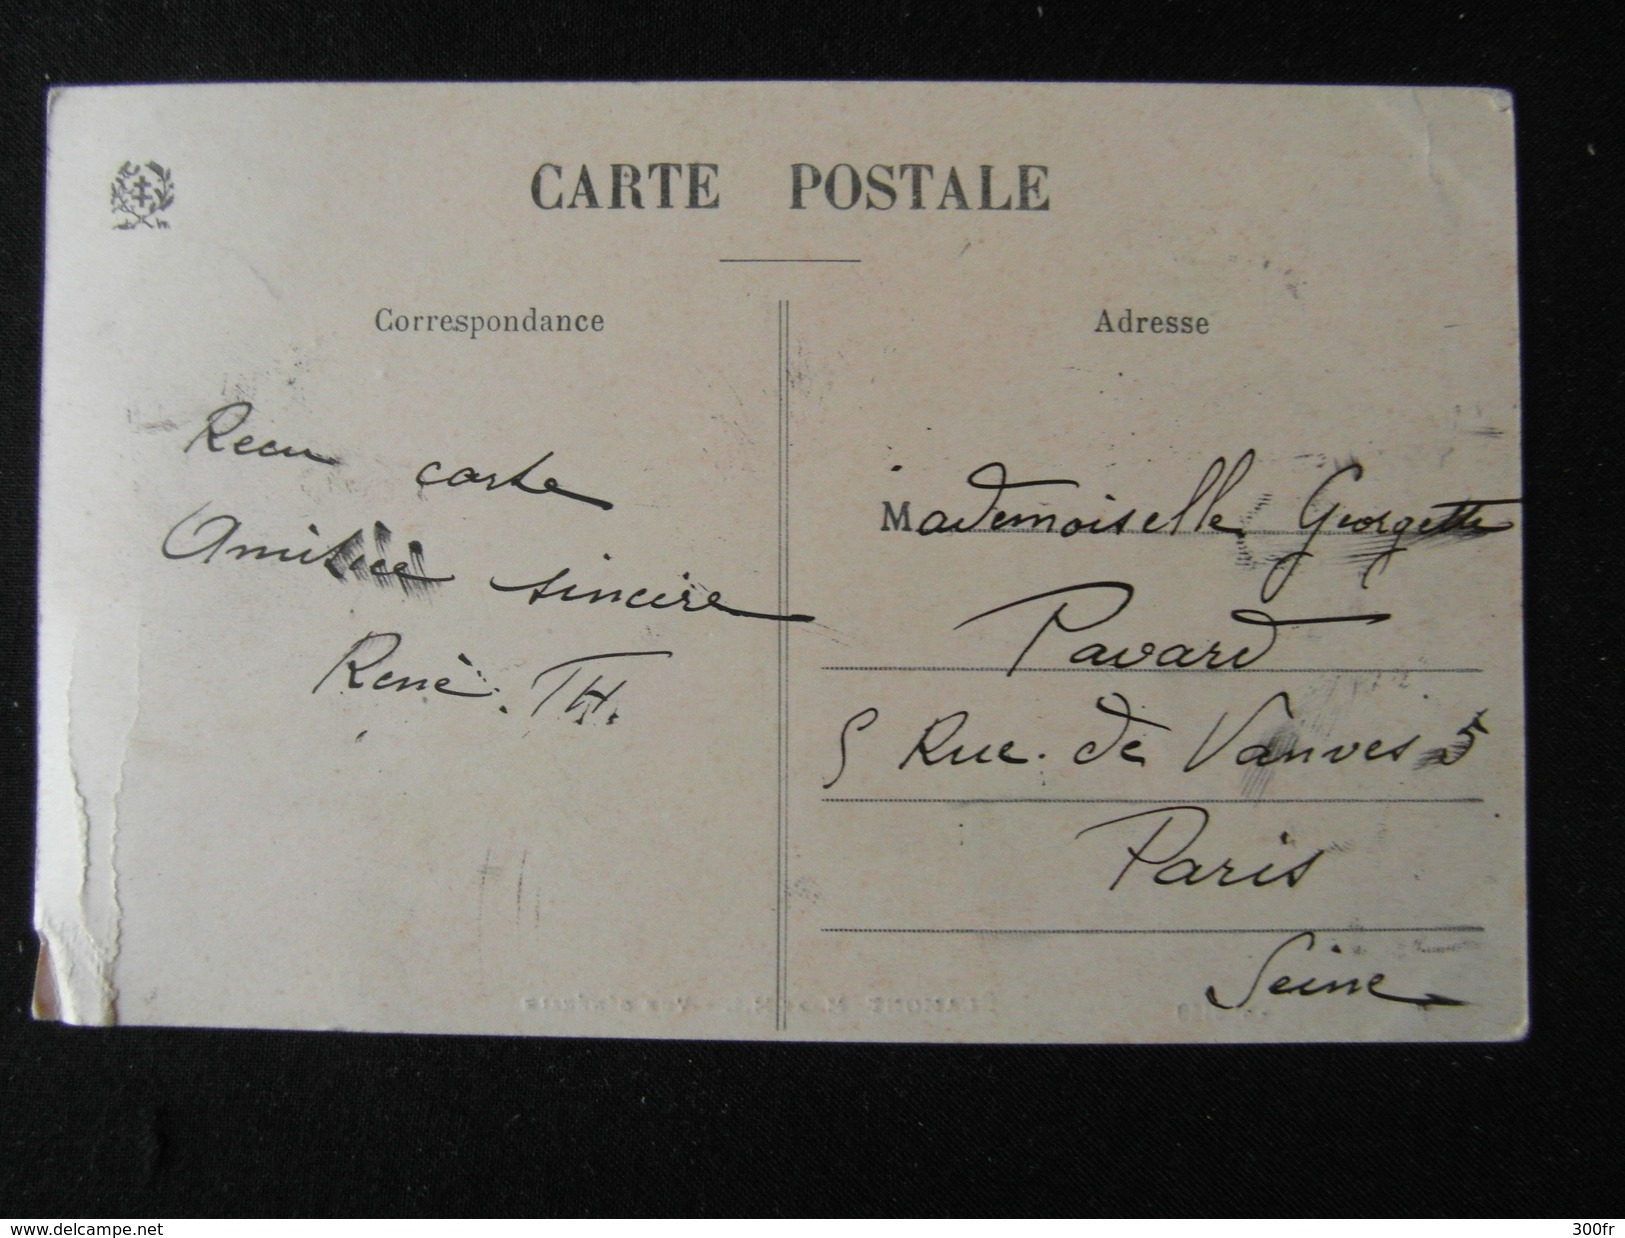 CARTE POSTALE
Correspondance
Recu carte
Amitiée sincire
Renè. TH.
Adresse
Mademoiselle Georgette
Pavard
5 Rue. de Vanves 5
Paris
Seine
www.delcampe.net
300fr